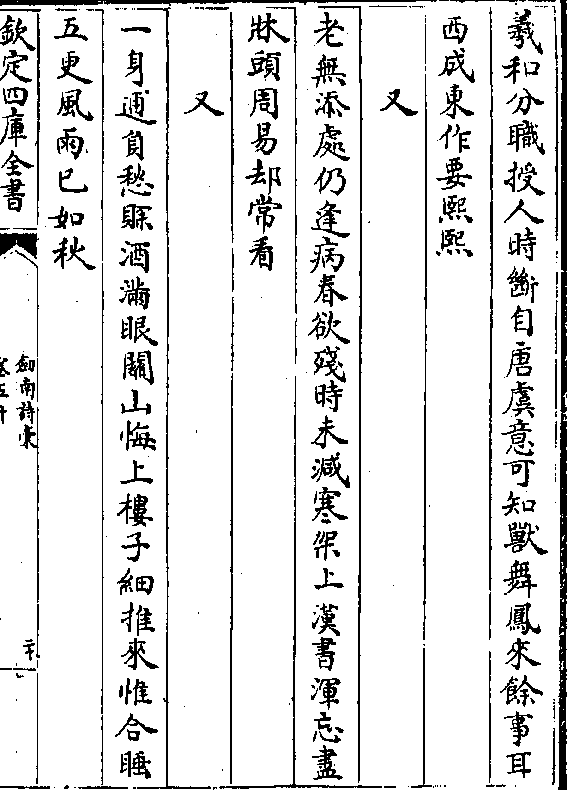 羲和分職授人時斷自唐虞意可知獸舞鳳來餘事耳
西成東作要熙熙
又
老無添處仍逢病春欲殘時未減寒架上漢書渾忘盡
牀頭周易却常看
又
一身逋負愁賖酒滿眼關山悔上樓子細推來惟合睡
五更風雨已如秋
欽定四庫全書
劔南詩稾
卷五十